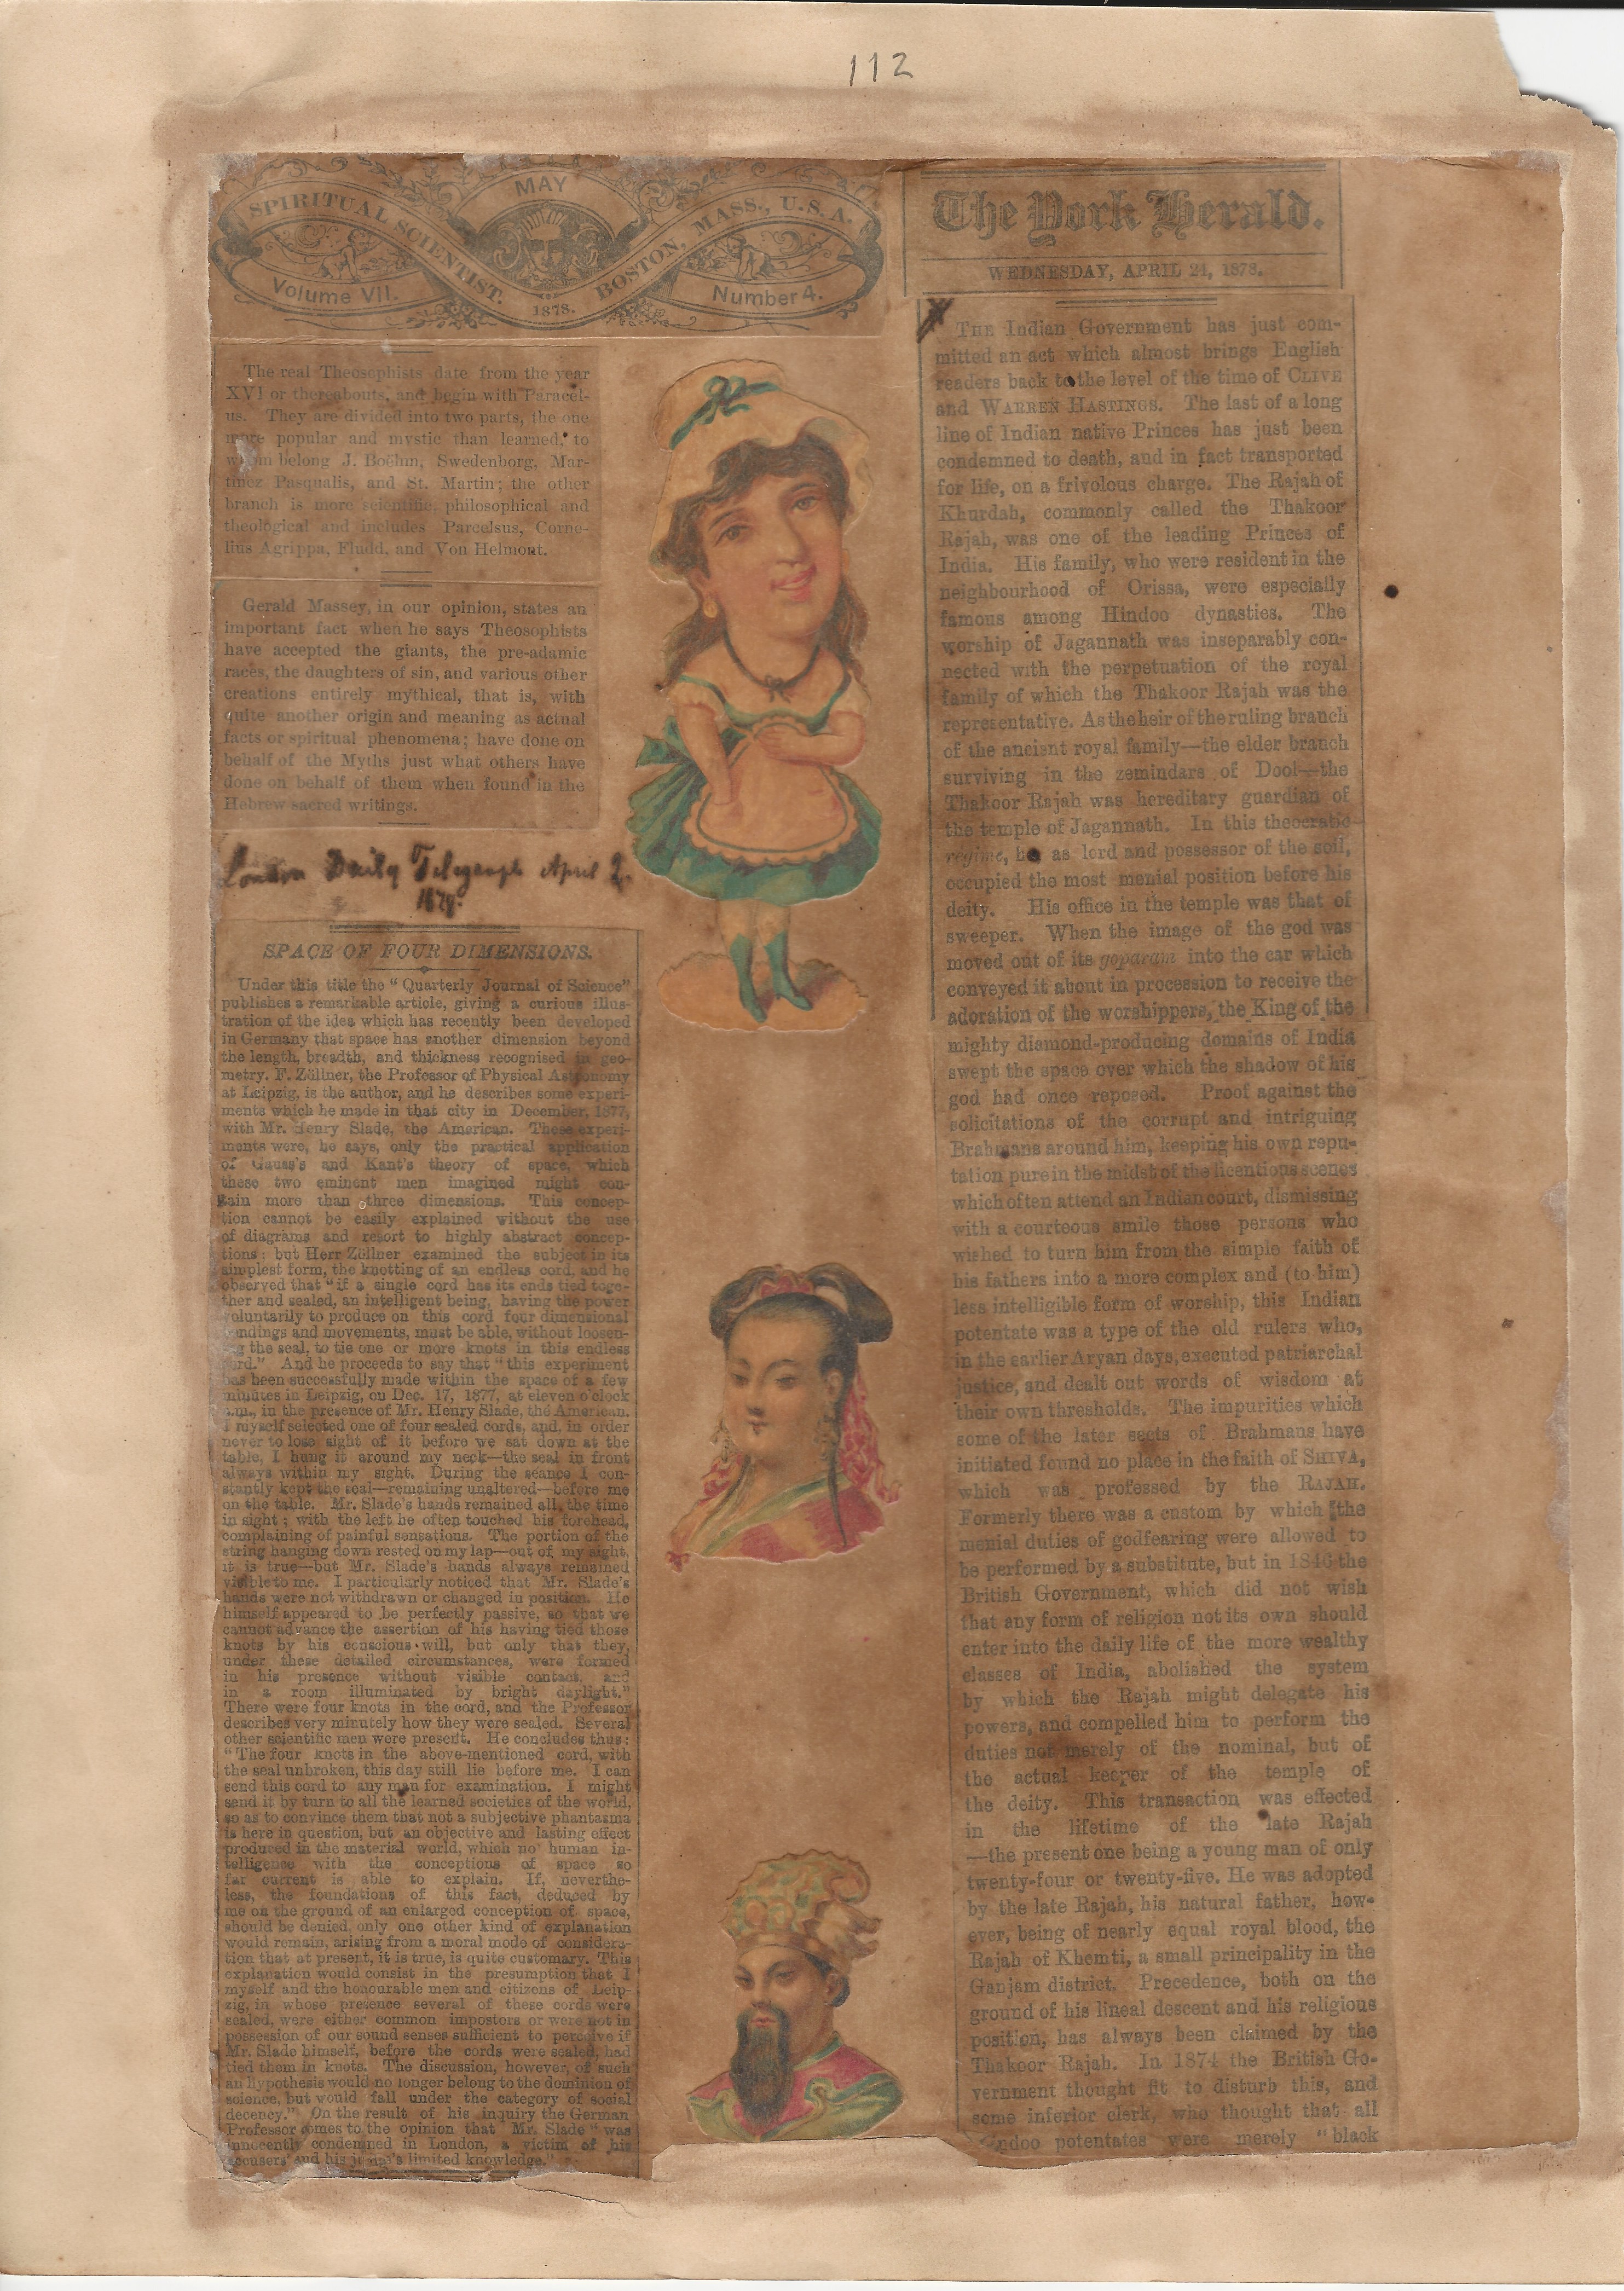 112
MAY
SPIRITUAL SCIENTIST.
BOSTON, MASS., U.S.A.
Volume VII.
1878.
Number 4.
The real Theosophists date from the year
XVI or thereabouts, and begin with Paracel-
us. They are divided into two parts, the one
more popular and mystic than learned, to
whom belong J. Boëhn, Swedenborg, Mar-
tinez Pasqualis, and St. Martin; the other
branch is more scientific, philosophical and
theological and includes Parcelsus, Corne-
lius Agrippa, Fludd, and Von Helmont.
Gerald Massey, in our opinion, states an
important fact when he says Theosophists
have accepted the giants, the pre-adamic
races, the daughters of sin, and various other
creations entirely mythical, that is, with
quite another origin and meaning as actual
facts or spiritual phenomena; have done on
behalf of the Myths just what others have
done on behalf of them when found in the
Hebrew sacred writings.
London Daily Telegraph April 2.
1878.
SPACE OF FOUR DIMENSIONS.
Under this title the "Quarterly Journal of Science"
publishes a remarkable article, giving a curious illus-
tration of the idea which has recently been developed
in Germany that space has another dimension beyond
the length, breadth, and thickness recognised in geo-
metry. F. Zöllner, the Professor of Physical Astronomy
at Leipzig, is the author, and he describes some experi-
ments which he made in that city in December, 1877,
with Mr. Henry Slade, the American. These experi-
ments were, he says, only the practical application
of Gauss's and Kant's theory of space, which
these two eminent men imagined might con-
tain more than three dimensions. This concep-
tion cannot be easily explained without the use
of diagrams and resort to highly abstract concep-
tions; but Herr Zöllner examined the subject in its
simplest form, the knotting of an endless cord, and he
observed that "if a single cord has its ends tied toge-
ther and sealed, an intelligent being, having the power
voluntarily to produce on this cord four dimensional
bendings and movements, must be able, without loosen-
ing the seal, to tie one or more knots in this endless
cord." And he proceeds to say that "this experiment
has been successfully made within the space of a few
minutes in Leipzig, on Dec. 17, 1877, at eleven o'clock
a.m., in the presence of Mr. Henry Slade, the American.
I myself selected one of four sealed cords, and, in order
never to lose sight of it before we sat down at the
table, I hung it around my neck—the seal in front
always within my sight. During the seance I con-
stantly kept the seal—remaining unaltered—before me
on the table. Mr. Slade's hands remained all the time
in sight; with the left he often touched his forehead,
complaining of painful sensations. The portion of the
string hanging down rested on my lap—out of my sight,
it is true—but Mr. Slade's hands always remained
visible to me. I particularly noticed that Mr. Slade's
hands were not withdrawn or changed in position. He
himself appeared to be perfectly passive, so that we
cannot advance the assertion of his having tied those
knots by his conscious will, but only that they,
under these detailed circumstances, were formed
in his presence without visible contact, and
in a room illuminated by bright daylight."
There were four knots in the cord, and the Professor
describes very minutely how they were sealed. Several
other scientific men were present. He concludes thus:
"The four knots in the above-mentioned cord, with
the seal unbroken, this day still lie before me. I can
send this cord to any man for examination. I might
send it by turn to all the learned societies of the world,
so as to convince them that not a subjective phantasma
is here in question, but an objective and lasting effect
produced in the material world, which no human in-
telligence with the conceptions of space so
far current is able to explain. If, neverthe-
less, the foundations of this fact, deduced by
me on the ground of an enlarged conception of space,
should be denied, only one other kind of explanation
would remain, arising from a moral mode of considera-
tion that at present, it is true, is quite customary. This
explanation would consist in the presumption that I
myself and the honourable men and citizens of Leip-
zig, in whose presence several of these cords were
sealed, were either common impostors or were not in
possession of our sound senses sufficient to perceive if
Mr. Slade himself, before the cords were sealed, had
tied them in knots. The discussion, however, of such
an hypothesis would no longer belong to the dominion of
science, but would fall under the category of social
decency." On the result of his inquiry the German
Professor comes to the opinion that "Mr. Slade "was
innocently condemned in London, a victim of his
accusers' and his judge's limited knowledge."
The York Herald.
WEDNESDAY, APRIL 24, 1878.
THE Indian Government has just com-
mitted an act which almost brings English
readers back to the level of the time of CLIVE
and WARREN HASTINGS. The last of a long
line of Indian native Princes has just been
condemned to death, and in fact transported
for life, on a frivolous charge. The Rajah of
Khurdah, commonly called the Thakoor
Rajah, was one of the leading Princes of
India. His family, who were resident in the
neighbourhood of Orissa, were especially
famous among Hindoo dynasties. The
worship of Jagannath was inseparably con-
nected with the perpetuation of the royal
family of which the Thakoor Rajah was the
representative. As the heir of the ruling branch
of the ancient royal family—the elder branch
surviving in the zemindars of Dool—the
Thakoor Rajah was hereditary guardian of
the temple of Jagannath. In this theocratic
régime, he as lord and possessor of the soil,
occupied the most menial position before his
deity. His office in the temple was that of
sweeper. When the image of the god was
moved out of its goparam into the car which
conveyed it about in procession to receive the
adoration of the worshippers, the King of the
mighty diamond-producing domains of India
swept the space over which the shadow of his
god had once reposed. Proof against the
solicitations of the corrupt and intriguing
Brahmans around him, keeping his own repu-
tation pure in the midst of the licentious scenes
which often attend an Indian court, dismissing
with a courteous smile those persons who
wished to turn him from the simple faith of
his fathers into a more complex and (to him)
less intelligible form of worship, this Indian
potentate was a type of the old rulers who,
in the earlier Aryan days, executed patriarchal
justice, and dealt out words of wisdom at
their own thresholds. The impurities which
some of the later sects of Brahmans have
initiated found no place in the faith of SHIVA,
which was professed by the RAJAH.
Formerly there was a custom by which the
menial duties of godfearing were allowed to
be performed by a substitute, but in 1846 the
British Government, which did not wish
that any form of religion not its own should
enter into the daily life of the more wealthy
classes of India, abolished the system
by which the Rajah might delegate his
powers, and compelled him to perform the
duties not merely of the nominal, but of
the actual keeper of the temple of
the deity. This transaction was effected
in the lifetime of the late Rajah
—the present one being a young man of only
twenty-four or twenty-five. He was adopted
by the late Rajah, his natural father, how-
ever, being of nearly equal royal blood, the
Rajah of Khemti, a small principality in the
Ganjam district. Precedence, both on the
ground of his lineal descent and his religious
position, has always been claimed by the
Thakoor Rajah. In 1874 the British Go-
vernment thought fit to disturb this, and
some inferior clerk, who thought that all
Hindoo potentates were merely "black